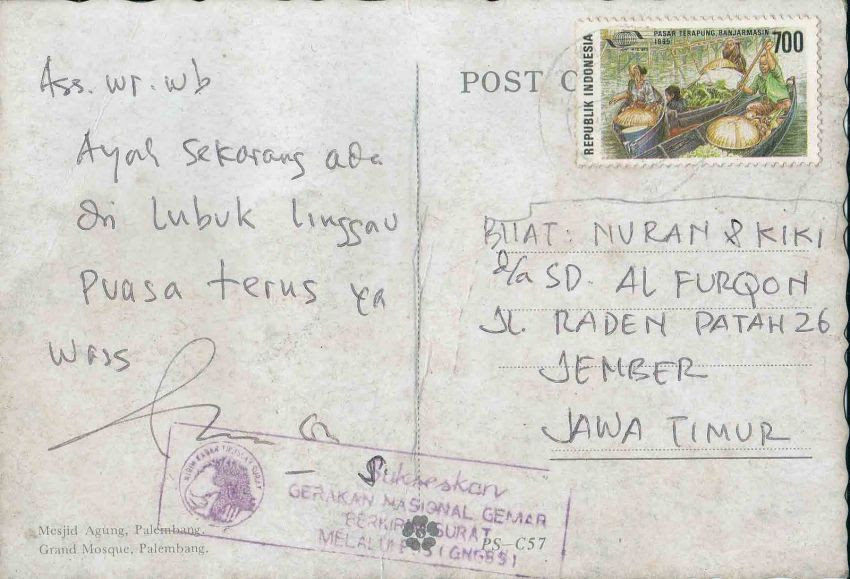 Ass. wr. wb
Ayah sekarang ada
di Lubuk Linggau
Puasa terus ya
Wass
Mesjid Agung, Palembang.
Grand Mosque, Palembang.
POST
REPUBLIK INDONESIA
PASAR TERAPUNG, BANJARMASIN
1995
700
BUAT: NURAN & KIKI
d/a SD. AL FURQON
JL. RADEN PATAH 26
JEMBER
JAWA TIMUR
Sukseskan
GERAKAN NASIONAL GEMAR
BERKIRIM SURAT
MELALUI
PS-C57